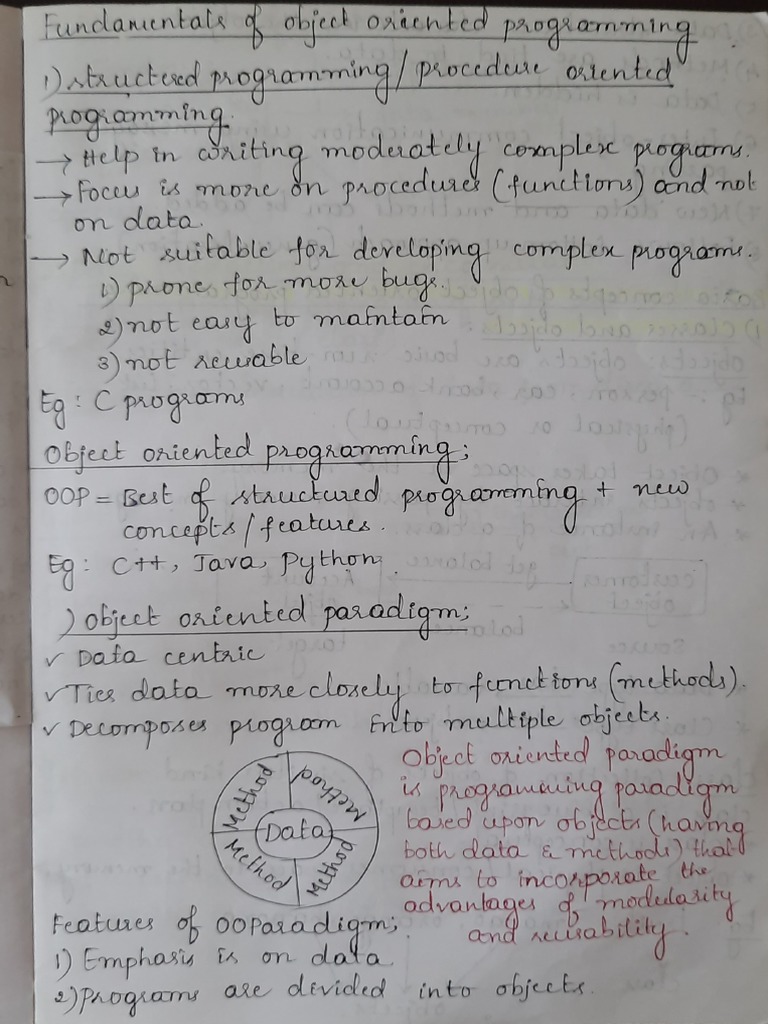 Fundamentals of object oriented programming
1) structered programming/procedure oriented
programming.
→ Help in writing moderately complex programs.
→ Focus is more on procedures (functions) and not
on data.
→ Not suitable for developing complex programs.
1) prone for more bugs.
2) not easy to maintain
3) not reusable
Eg: C programs
Object oriented programming;
OOP = Best of structured programming + new
concepts/features.
Eg: C++, Java, Python.
) object oriented paradigm;
✓ Data centric
✓ Ties data more closely to functions (methods).
✓ Decomposes program into multiple objects.
Method Method
Data
Method Method
Object oriented paradigm
is programming paradigm
based upon objects (having
both data & methods) that
aims to incorporate the
advantages of modularity
and reusability.
Features of OOParadigm;
1) Emphasis is on data
2) Programs are divided into objects.